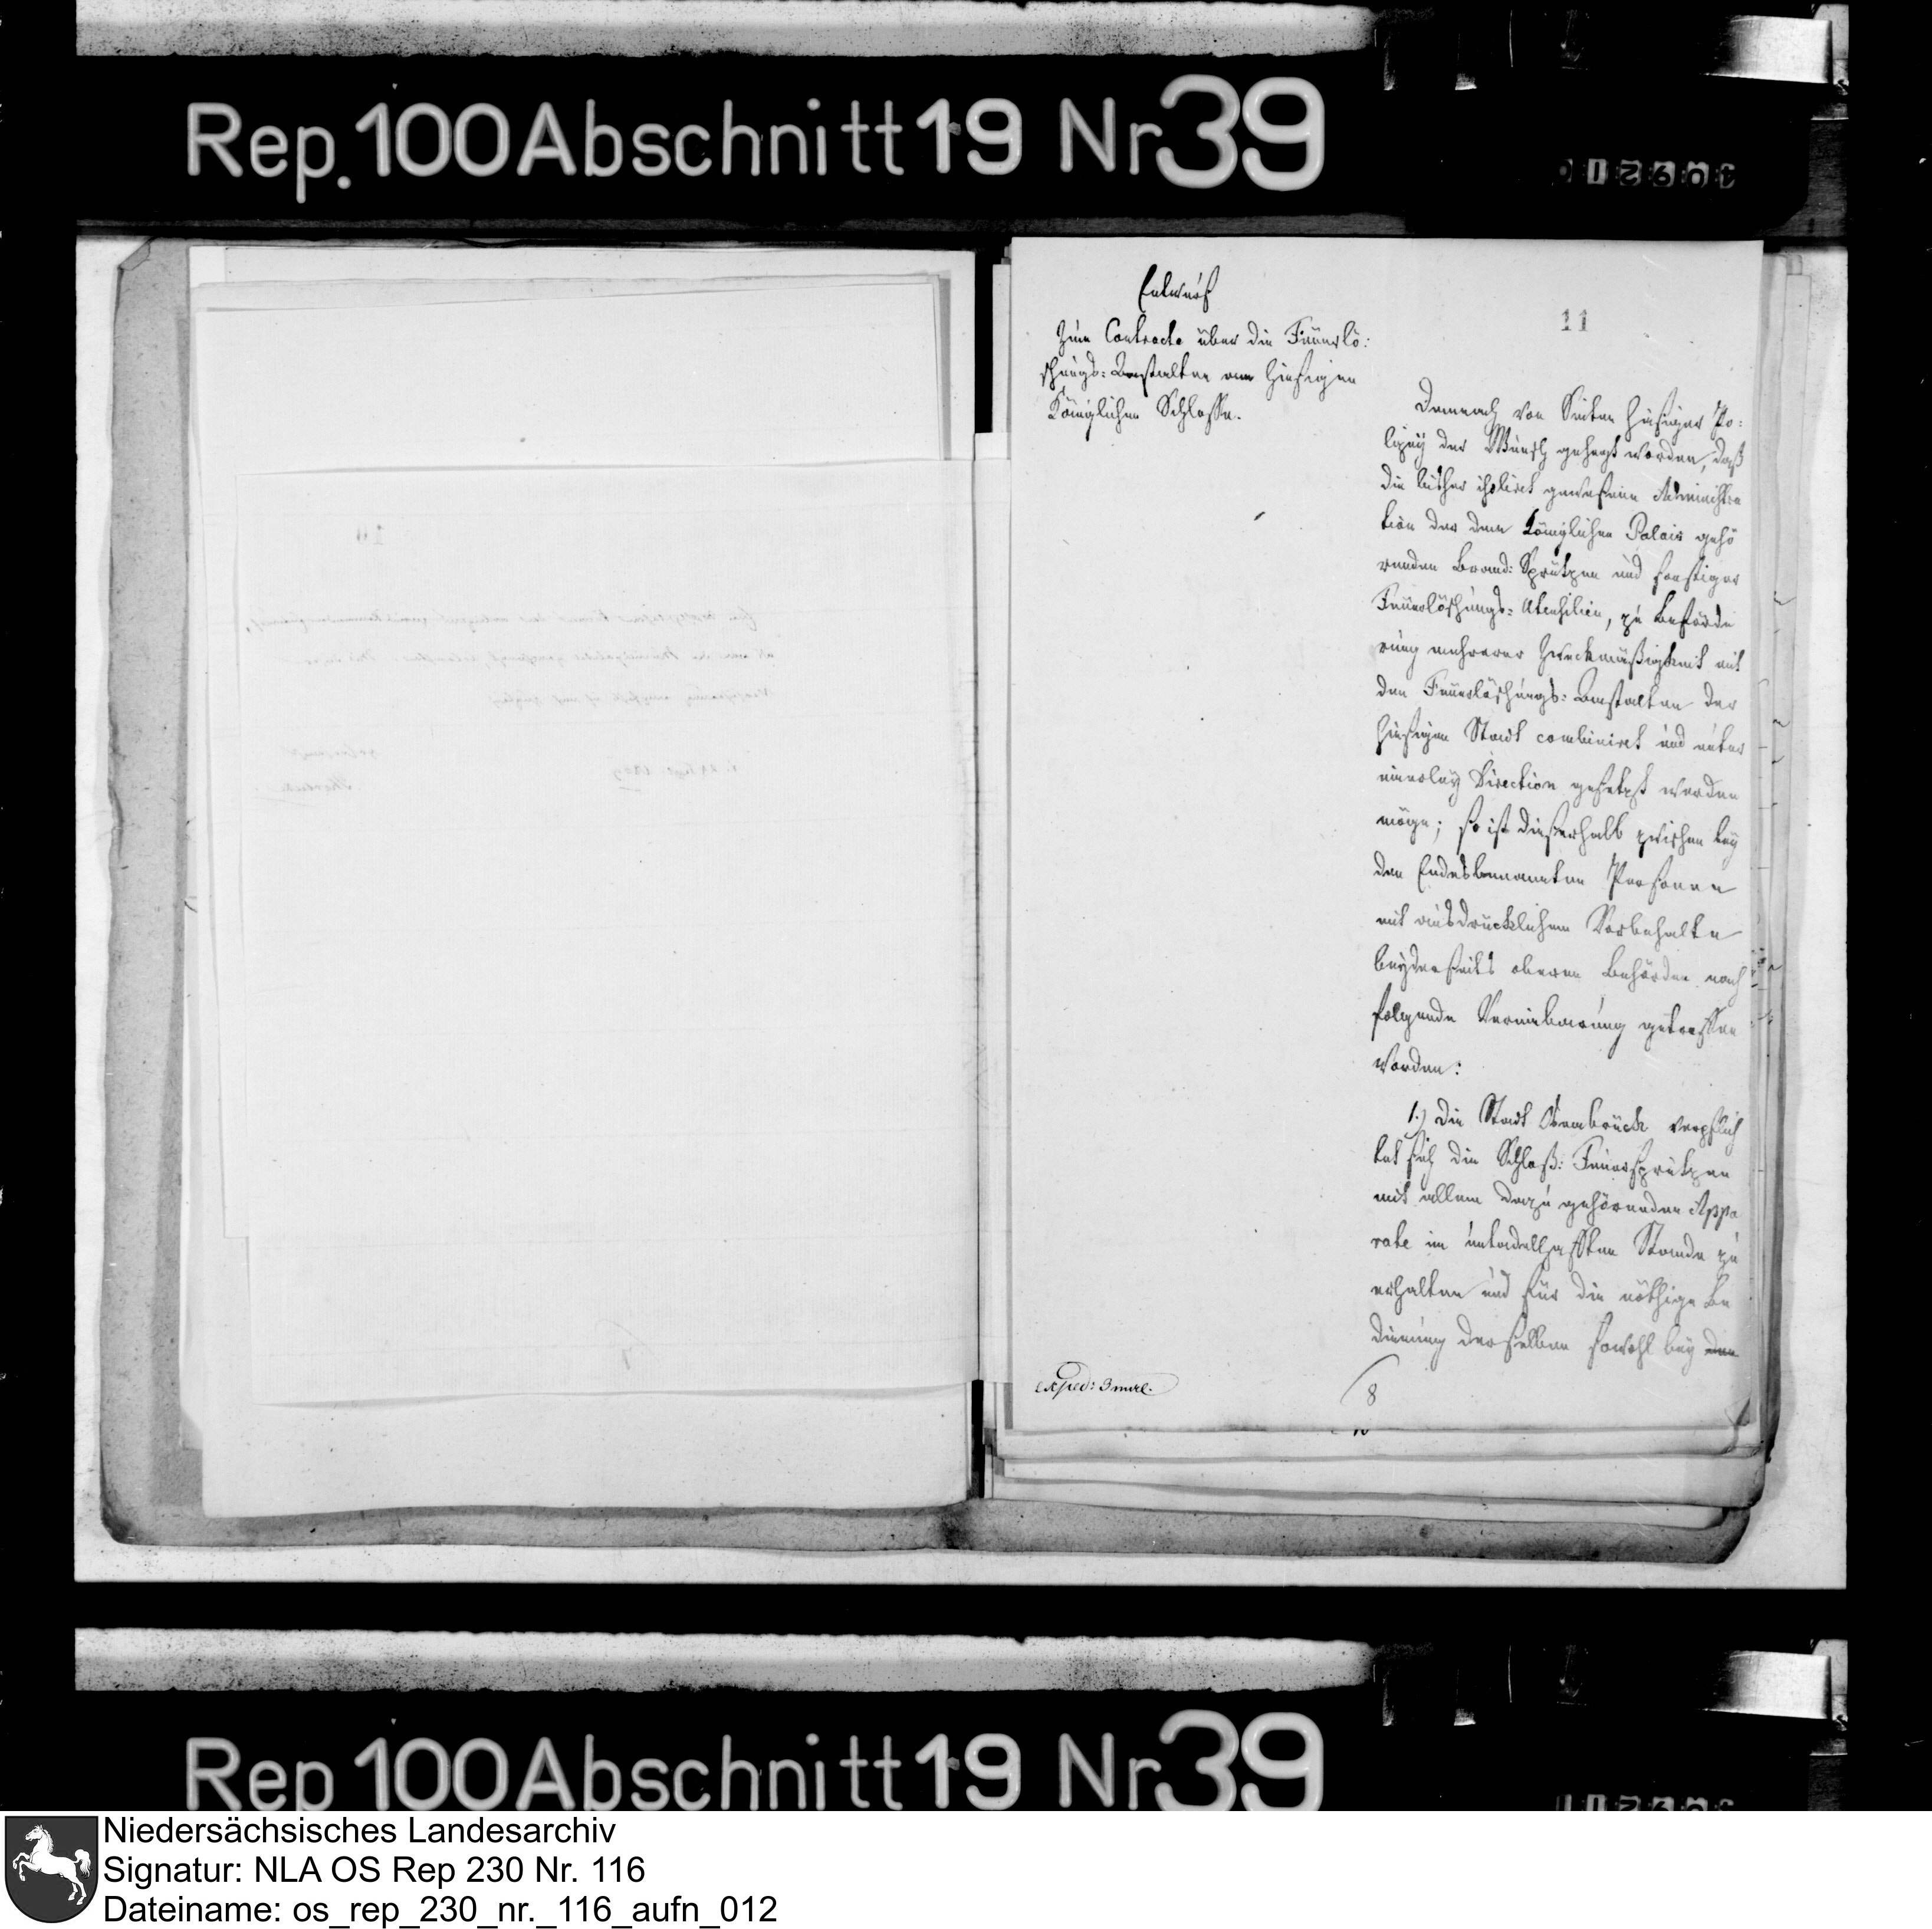 Rep. 100 Abschnitt 19 Nr 39
11
Entwurf
Zum Contracte über die Feüerlö:
schungs: Anstalten am hiesigen
Königlichen Schlosse.
Demnach von Seiten hiesiger Po:
lizey der Wunsch gehegt worden, daß
die bisher isolirt gewesene Administra
tion der dem Königlichen Palais gehö
renden Brand: Sprützen und sonstiger
Feüerlöschungs: Utensilien, zu Beförde
rung mehrerer Zweckmäßigkeit mit
den Feüerlöschungs: Anstalten der
hiesigen Stadt combiniret und unter
einerley Direction gesetzt werden
möge; so ist dieserhalb zwischen bey
den Endesbenannten Personen
mit ausdrücklichem Vorbehalte
beyderseits oberen Behörden nach
folgende Vereinbarung getroffen
worden:
1.) Die Stadt Osnabrück verpflich
tet sich die Schloß: Feuersprützen
mit allem dazu gehörenden Appa
rate im untadelhafften Stande zu
erhalten und für die nöthige Be
dienung derselben sowohl bey den
exped: 3 mal.
8
Rep 100 Abschnitt 19 Nr 39
Niedersächsisches Landesarchiv
Signatur: NLA OS Rep 230 Nr. 116
Dateiname: os_rep_230_nr._116_aufn_012